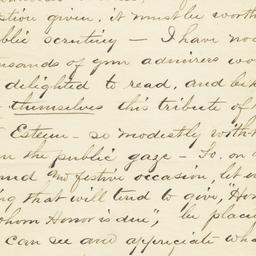 stion given, it must be worth
blic scrutiny — I have no
ousands of your admirers wo
delighted to read, and be
themselves this tribute of
Esteem — so modestly with-h
m the public gaze — So, on
and festive occasion, let
ing that will tend to give, "Hon
whom Honor is due", be place
can see and appreciate wha